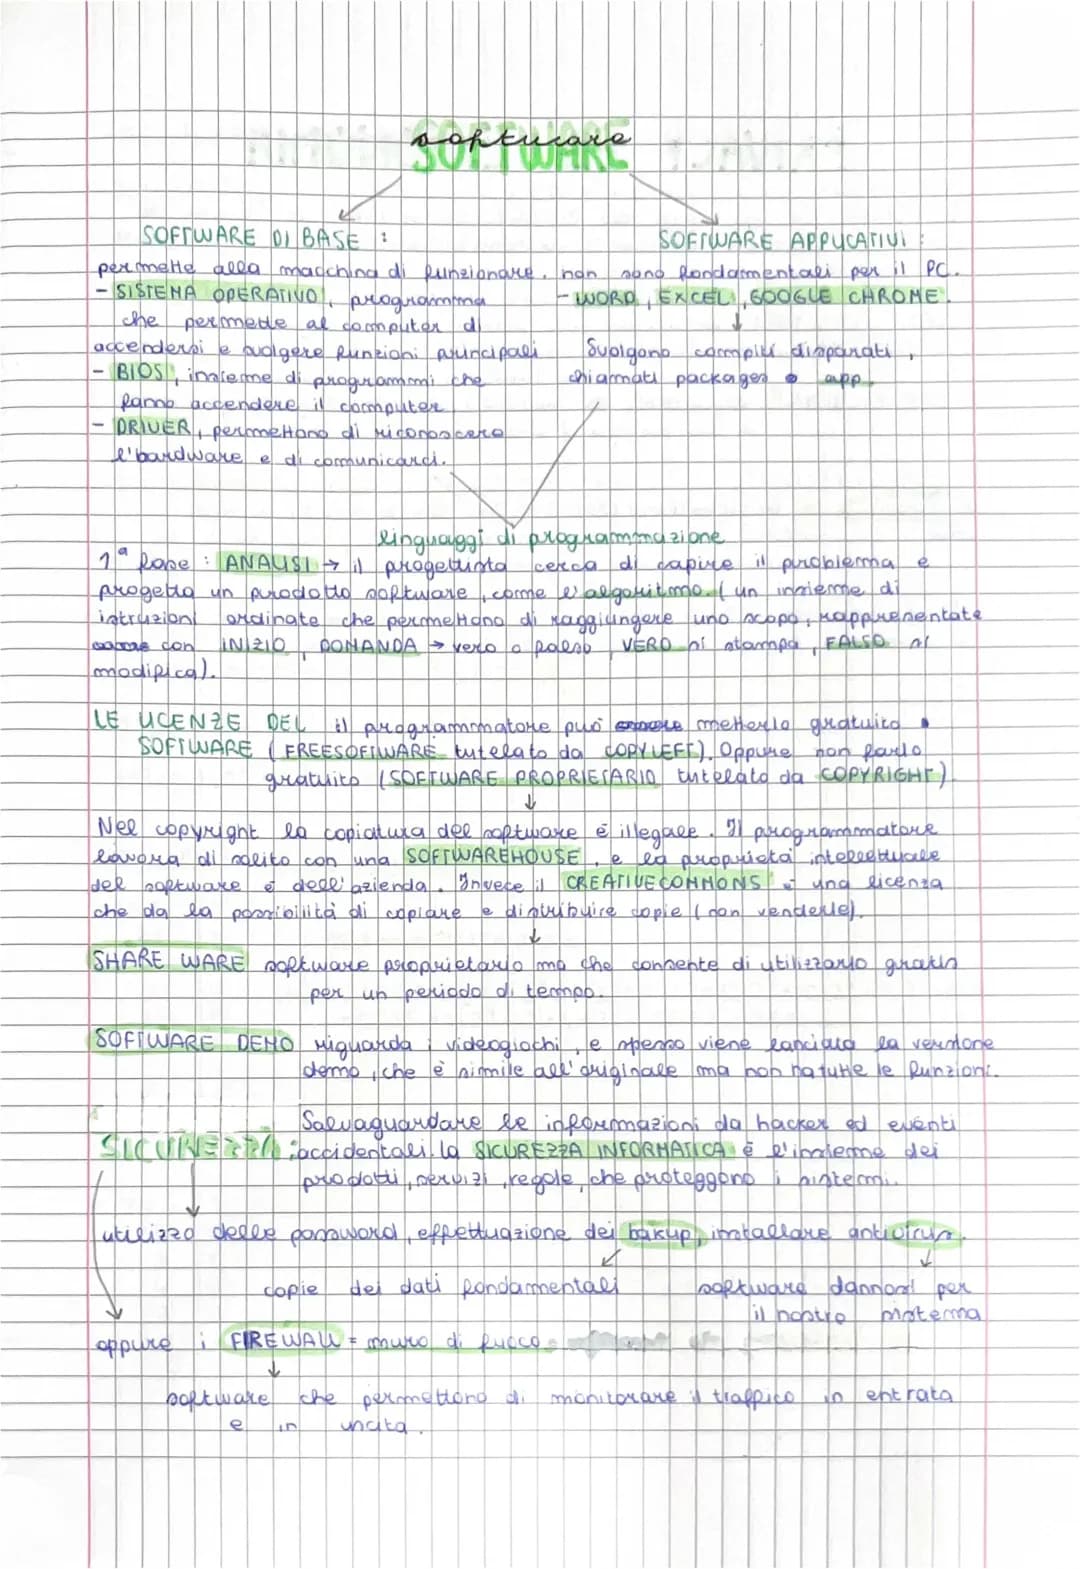 software
SOFTWARE
SOFTWARE DI BASE :
permette alla macchina di funzionare.
- SISTEMA OPERATIVO, programma
che permette al computer di
accendersi e svolgere funzioni principali
- BIOS, insieme di programmi che
fanno accendere il computer
- DRIVER, permettono di riconoscere
l'hardware e di comunicarci.
SOFTWARE APPLICATIVI :
non sono fondamentali per il PC.
- WORD, EXCEL, GOOGLE CHROME.
Svolgono compiti disparati,
chiamati packages o app.
linguaggi di programmazione
1ª fase : ANALISI → il progettista cerca di capire il problema e
progetta un prodotto software, come l'algoritmo (un insieme di
istruzioni ordinate che permettono di raggiungere uno scopo, rappresentate
con INIZIO, DOMANDA → vero o falso, VERO si stampa, FALSO si
modifica).
LE LICENZE DEL il programmatore può metterlo gratuito
SOFTWARE (FREESOFTWARE tutelato da COPYLEFT). Oppure non farlo
gratuito (SOFTWARE PROPRIETARIO tutelato da COPYRIGHT)
↓
Nel copyright la copiatura del software è illegale. Il programmatore
lavora di solito con una SOFTWAREHOUSE, e la proprietà intellettuale
del software è dell'azienda. Invece il CREATIVECOMMONS è una licenza
che da la possibilità di copiare e distribuire copie (non venderle).
↓
SHARE WARE software proprietario ma che consente di utilizzarlo gratis
per un periodo di tempo.
SOFTWARE DEMO riguarda i videogiochi, e spesso viene lanciata la versione
demo, che è simile all'originale ma non ha tutte le funzioni.
Salvaguardare le informazioni da hacker ed eventi
SICUREZZA : accidentali. la SICUREZZA INFORMATICA è l'insieme dei
prodotti, servizi, regole, che proteggono i sistemi.
utilizzo delle password, effettuazione dei bakup, installare antivirus.
copie dei dati fondamentali
software dannosi per
il nostro sistema
oppure i FIREWALL = muro di fuoco
↓
software che permettono di monitorare il traffico in entrata
e in uscita.